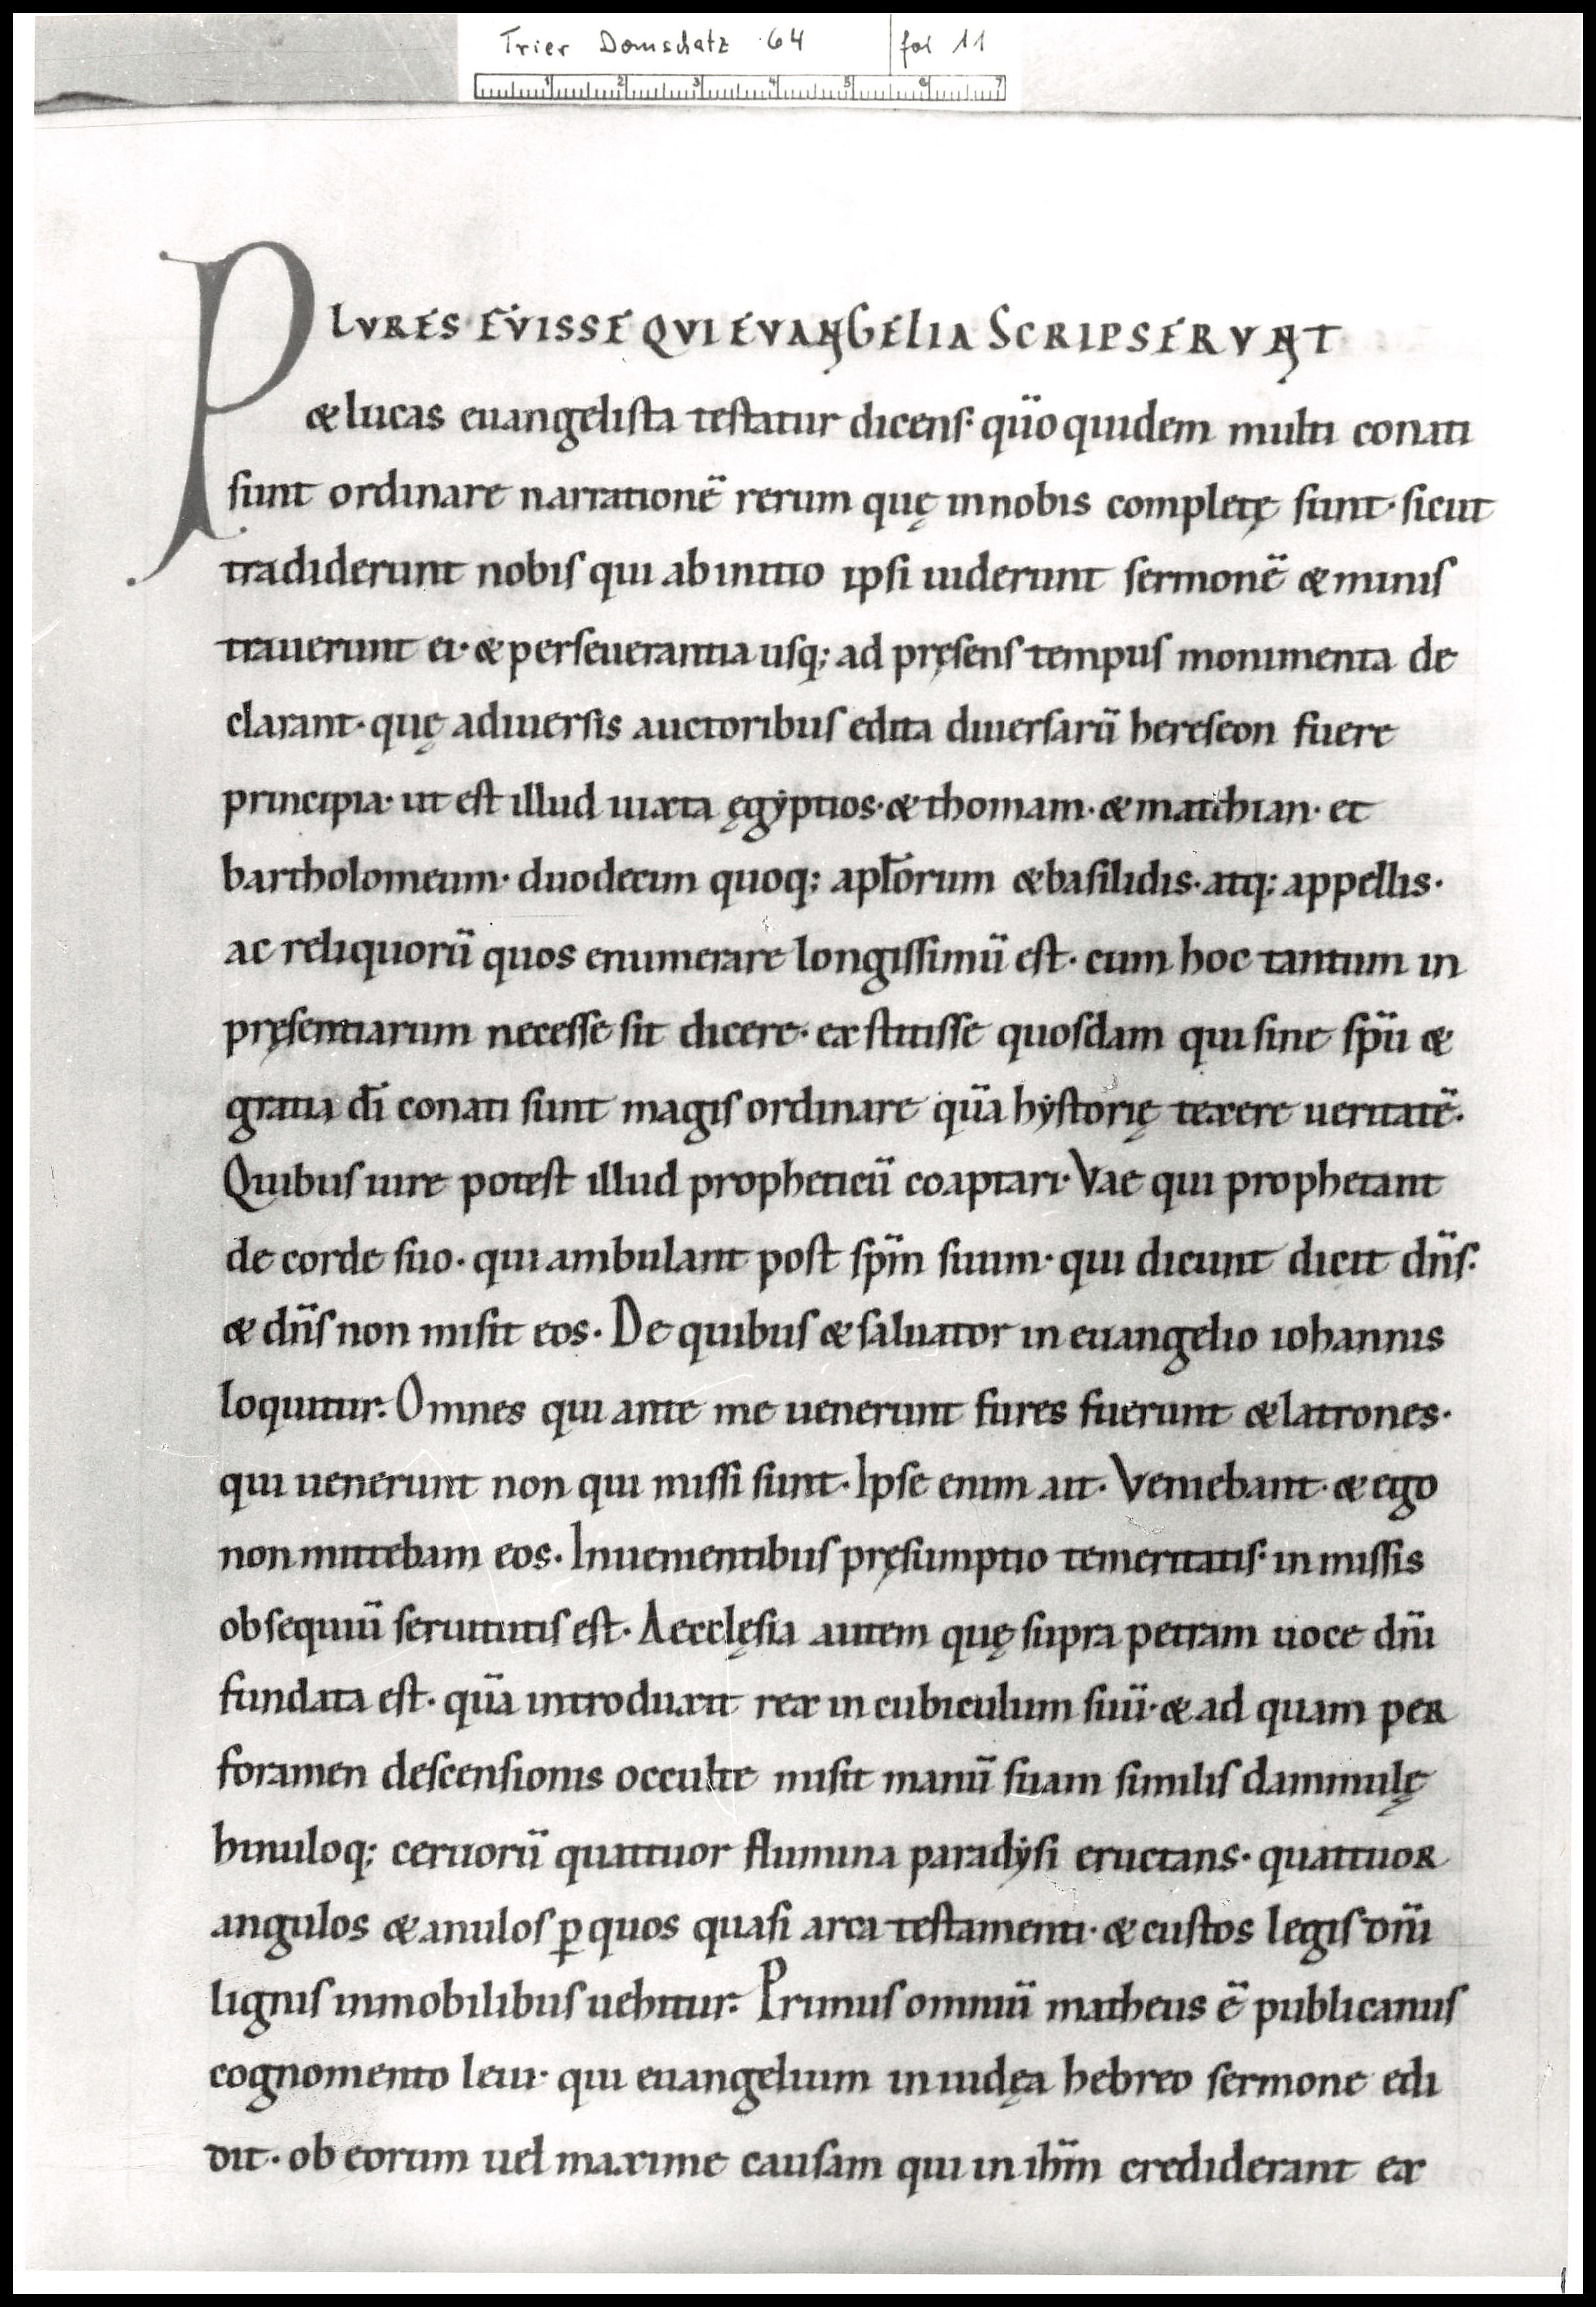 Trier Domschatz 64 fol 11
1 2 3 4 5 6 7
PLVRES FVISSE QVI EVANGELIA SCRIPSERVNT
& lucas euangelista testatur dicens· qūo quidem multi conati
sunt ordinare narrationē rerum quę in nobis completę sunt· sicut
tradiderunt nobis qui ab initio ipsi uiderunt sermonē & minis
trauerunt ei· & perseuerantia usq; ad pręsens tempus monimenta de
clarant· quę a diuersis auctoribus edita diuersarū hereseon fuere
principia· ut est illud iuxta ęgyptios· & thomam· & mathian· et
bartholomeum· duodecim quoq; apl̄orum & basilidis· atq; appellis·
ac reliquorū quos enumerare longissimū est· cum hoc tantum in
pręsentiarum necesse sit dicere· exstitisse quosdam qui sine sp̄u &
gratia dī conati sunt magis ordinare quā hystorię texere ueritatē·
Quibus iure potest illud propheticū coaptari· Vae qui prophetant
de corde suo· qui ambulant post sp̄m suum· qui dicunt dicit dn̄s·
& dn̄s non misit eos· De quibus & saluator in euangelio iohannis
loquitur· Omnes qui ante me uenerunt fures fuerunt & latrones·
qui uenerunt non qui missi sunt· Ipse enim ait· Veniebant· & ego
non mittebam eos· In uenientibus pręsumptio temeritatis· in missis
obsequiū seruitutis est· Aecclęsia autem quę supra petram uoce dn̄i
fundata est· quā introduxit rex in cubiculum suū· & ad quam per
foramen descensionis occulte misit manū suam similis dammulę
hinuloq; ceruorū quattuor flumina paradysi eructans· quattuor
angulos & anulos ꝑ quos quasi arca testamenti· & custos legis dn̄i
lignis inmobilibus uehitur· Primus omniū matheus ē publicanus
cognomento leui· qui euangelium in iudęa hebreo sermone edi
dit· ob eorum uel maxime causam qui in ihm̄ crediderant ex